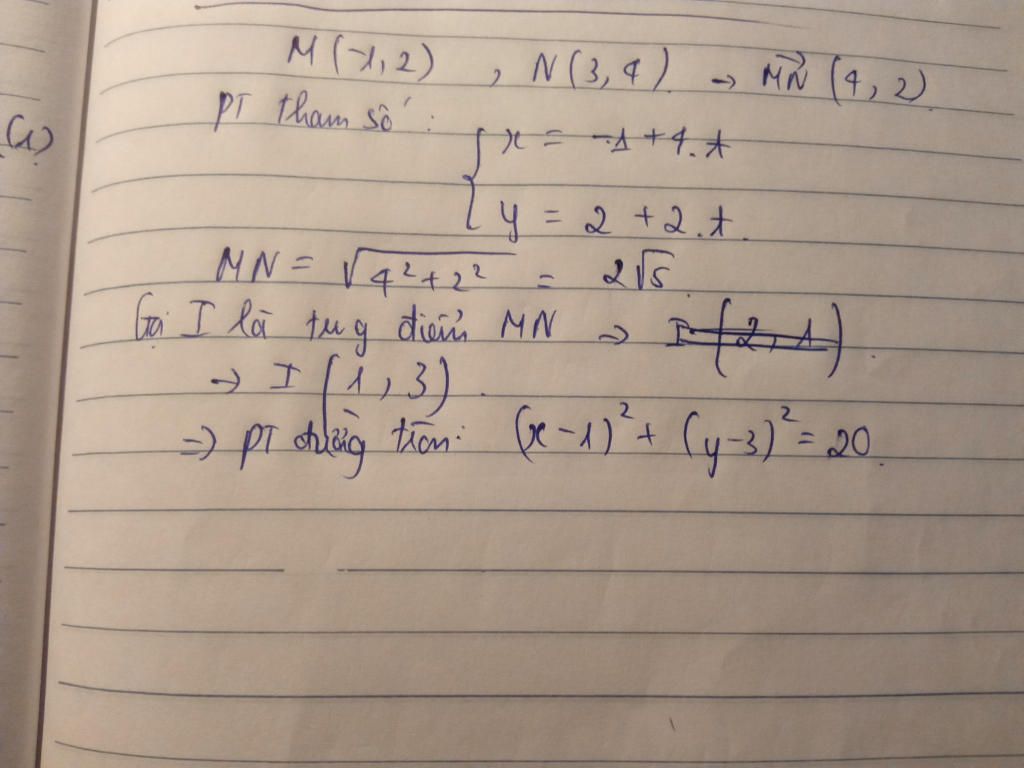 M(-1,2) , N(3,4). → MN⃗ (4,2)
(1)
PT tham số :
{ x = -1 + 4.t
y = 2 + 2.t.
MN = √4² + 2² = 2√5.
Gọi I là trug điểm MN → I (2, 1).
→ I (1, 3).
⇒ PT đường tròn: (x - 1)² + (y - 3)² = 20.